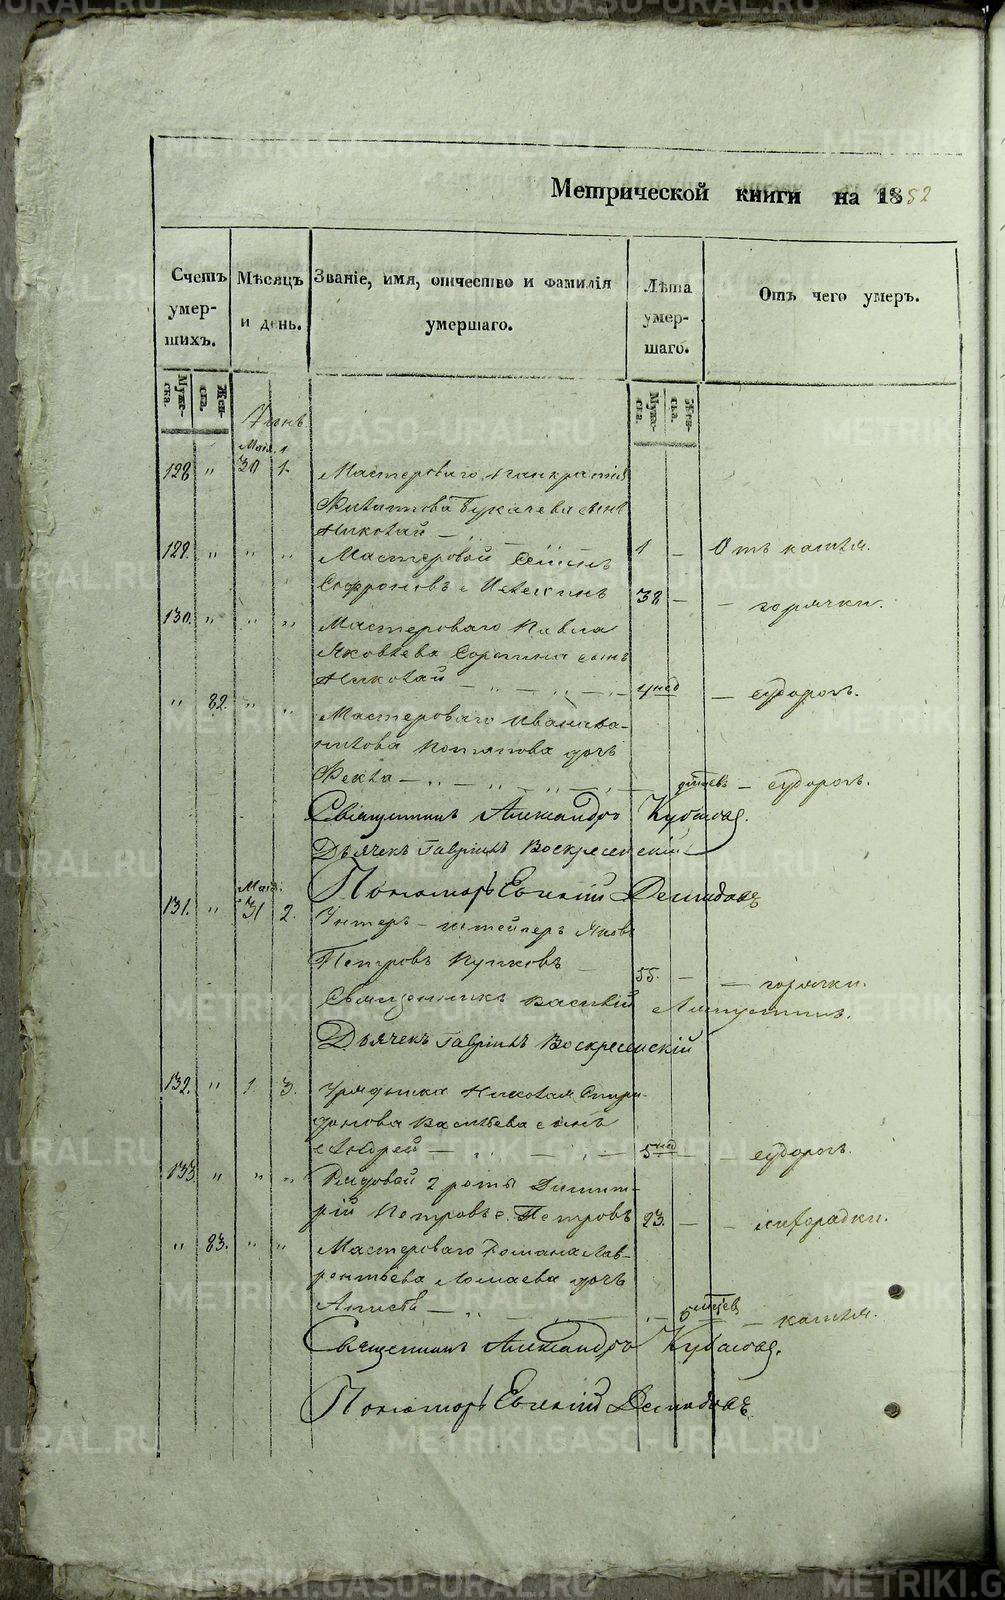 Метрической книги на 1852
Счетъ умер- шихъ.
Мѣсяцъ и день.
Званіе, имя, отчество и фамилія умершаго.
Лѣта умер- шаго.
Отъ чего умеръ.
Мужес- ка.
Жен- ска.
Мужес- ка.
Жен- ска.
Іюнь
Маія
128 " 30 1. Мастероваго Панкратія
Филатова Букачева сынъ
Николай — 1 — Отъ кашля.
129. " " " Мастеровой Семенъ
Софроновъ 38 — — горячки.
130. " " " Мастероваго Павла
Яковлева Сорокина сынъ
Николай — " — " — 4 нед — судорогъ.
" 82. " " Мастероваго Ивана
дочь
Фекла — " — " — — судорогъ.
Священникъ Александръ
Дьячекъ Гавріилъ Воскресенскій
Пономарь Евгеній Демидовъ
Маія
131. " 31 2. Унтеръ-штейгеръ Яковъ
Петровъ Пупковъ — 55. — — горячки.
Священникъ Василій
Дьячекъ Гавріилъ Воскресенскій
132. " 1. 3. Урядника Николая Спири-
донова Васильева сынъ
Андрей — " — 5 нед — — судорогъ.
133. " " " Рядовой 2 роты Димит-
рій Петровъ Петровъ 23. — — лихорадки.
" 83. " " Мастероваго Романа Лав-
рентьева Ломаева дочь
— 6 месяцев — кашля.
Священникъ Александръ
Пономарь Евгеній Демидовъ
METRIKI.GASO-URAL.RU